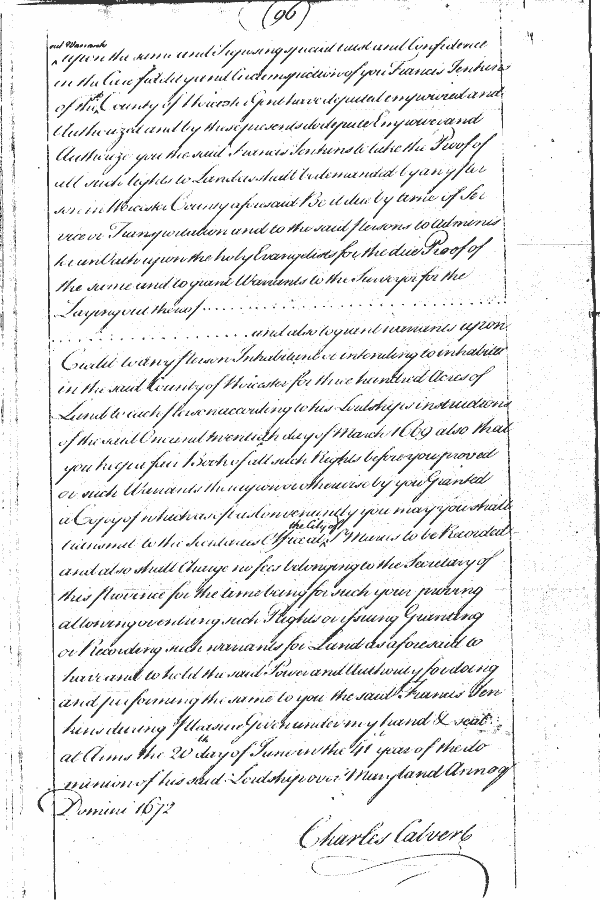 (96)
out Warrants
upon the same and Reposing special trust and Confidence
in the Care fidelity and Circumspection of you Francis Jenkins
of the County of Worcester Gent have deputed empowered and
Authorized and by these presents do depute Empower and
Authorize you the said Francis Jenkins to take the Proof of
all such Rights to Land as shall be demanded by any Per
son in Worcester County aforesaid Be it due by time of Ser
vice or Transportation and to the said Persons to Adminis
ter an Oath upon the holy Evangelists for the due Proof of
the same and to grant Warrants to the Surveyor for the
Laying out thereof
and also to grant warrants upon
Credit to any Person Inhabitant or intending to inhabit
in the said County of Worcester for three hundred Acres of
Land to each Person according to his Lordships instructions
of the said One and twentieth day of March 1669 also that
you keep a fair Book of all such Rights before you proved
or such Warrants thereupon or otherwise by you Granted
a Copy of which as oft as Conveniently you may you shall
transmit to the Secretaries Office at the City of St Maries to be Recorded
and also shall Charge no fees belonging to the Secretary of
this Province for the time being for such your proving
allowing or entring such Rights or issuing Granting
or Recording such warrants for Land as aforesaid to
have and to hold the said Power and Authority for doing
and performing the same to you the said Francis Jen
kins during Pleasure Given under my hand & seal
at Arms the 20th day of June in the 41 year of the do
minion of his said Lordship over Maryland Annoq
Domini 1672
Charles Calvert